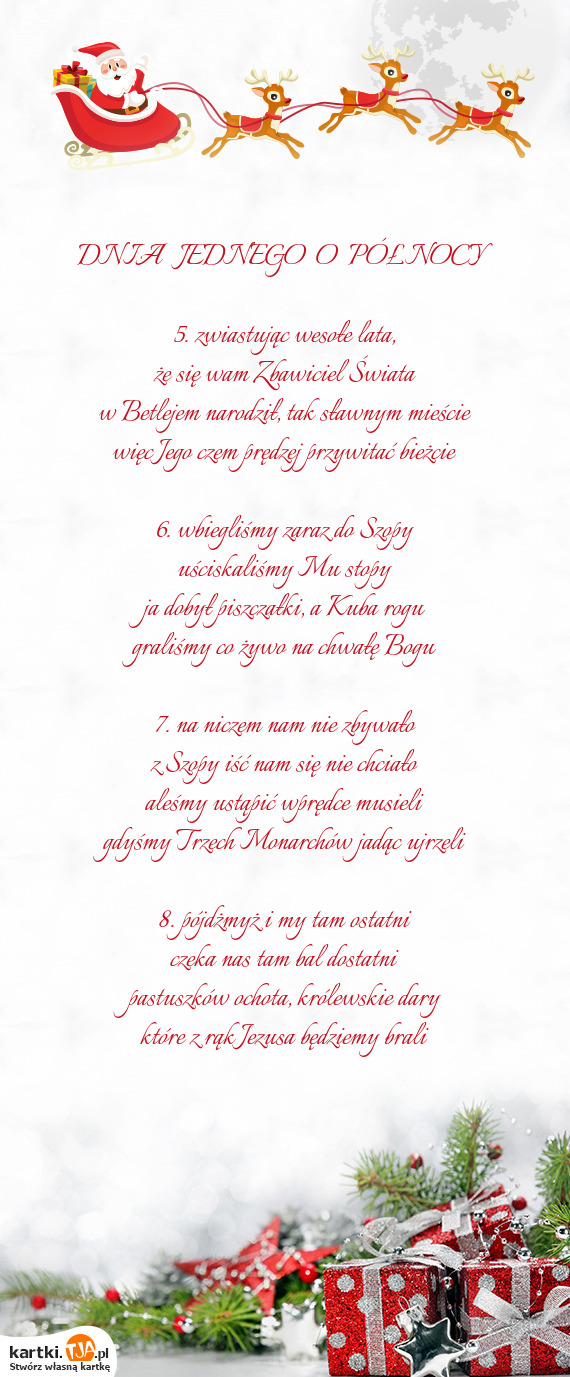 DNIA JEDNEGO O PÓŁNOCY
5. zwiastując wesołe lata,
że się wam Zbawiciel Świata
w Betlejem narodził, tak sławnym mieście
więc Jego czem prędzej przywitać bieżcie
6. wbiegliśmy zaraz do Szopy
uściskaliśmy Mu stopy
ja dobył piszczałki, a Kuba rogu
graliśmy co żywo na chwałę Bogu
7. na niczem nam nie zbywało
z Szopy iść nam się nie chciało
aleśmy ustąpić wprędce musieli
gdyśmy Trzech Monarchów jadąc ujrzeli
8. pójdźmyż i my tam ostatni
czeka nas tam bal dostatni
pastuszków ochota, królewskie dary
które z rąk Jezusa będziemy brali
kartki.TJA.pl
Stwórz własną kartkę